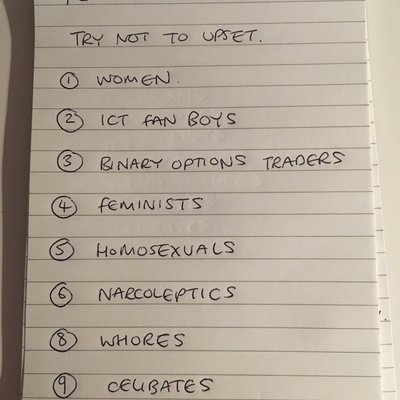 TRY NOT TO UPSET.
① WOMEN.
② ICT FAN BOYS
③ BINARY OPTIONS TRADERS
④ FEMINISTS
⑤ HOMOSEXUALS
⑥ NARCOLEPTICS
⑧ WHORES
⑨ CELIBATES